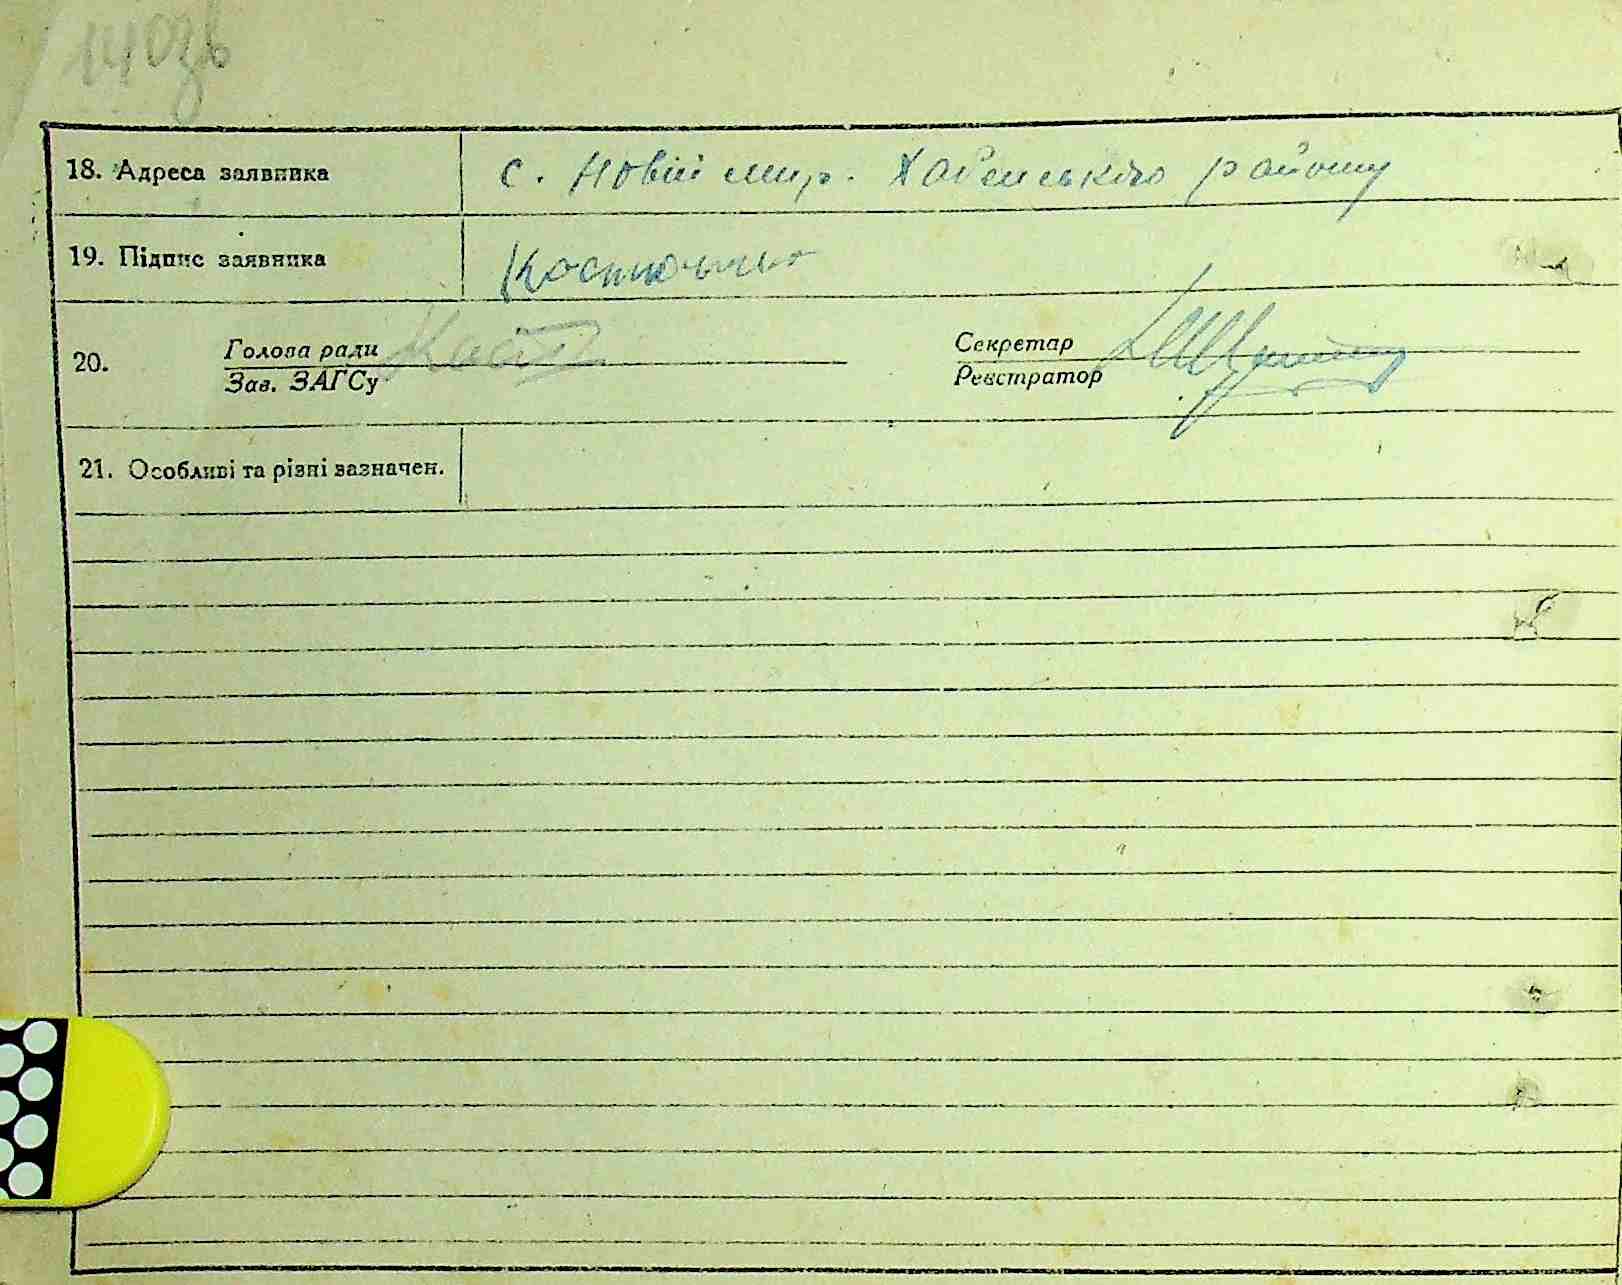 140зв
18. Адреса заявника с. Новий мир. Хабенського району
19. Підпис заявника Костюченко
20. Голова ради Секретар
Зав. ЗАГСу Реєстратор
21. Особливі та різні зазначен.